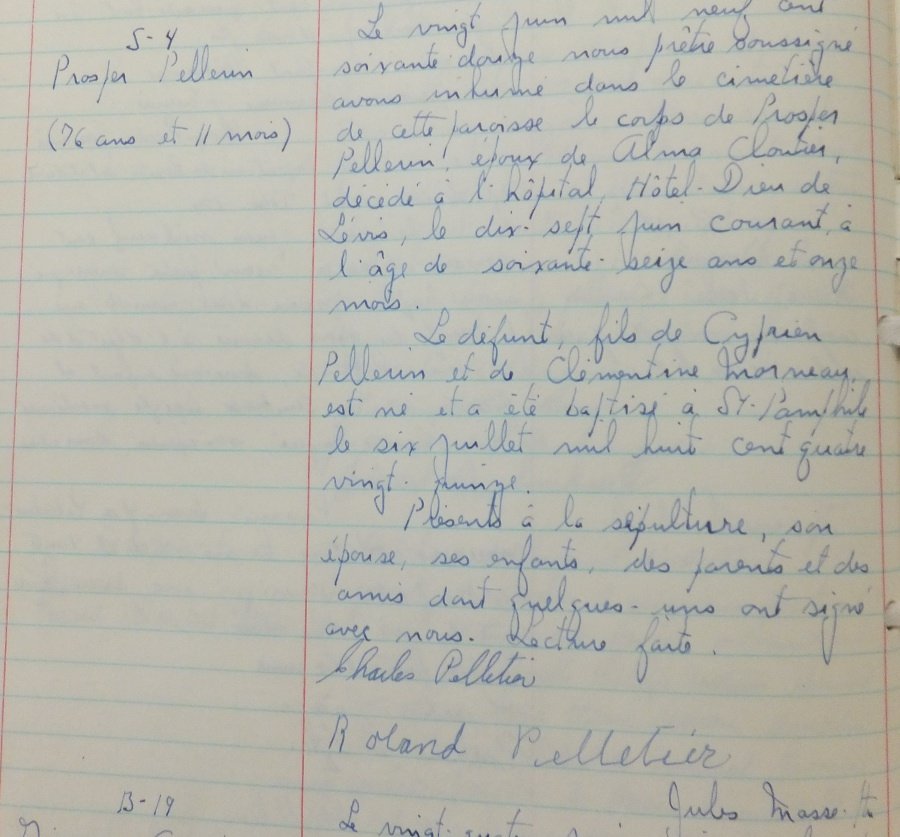 S-4
Prosper Pellerin
(76 ans et 11 mois)
Le vingt juin mil neuf cent
soixante-douze nous prêtre soussigné
avons inhumé dans le cimetière
de cette paroisse le corps de Prosper
Pellerin, époux de Alma Cloutier,
décédé à l'hôpital, Hôtel-Dieu de
Lévis, le dix-sept juin courant, à
l'âge de soixante-seize ans et onze
mois.
Le défunt, fils de Cyprien
Pellerin et de Clémentine Morneau,
est né et a été baptisé à St-Pamphile
le six juillet mil huit cent quatre
vingt-quinze.
Présents à la sépulture, son
épouse, ses enfants, des parents et des
amis dont quelques-uns ont signé
avec nous. Lecture faite.
Charles Pelletier
Roland Pelletier
Jules Masse
B-19
Le vingt-quatre